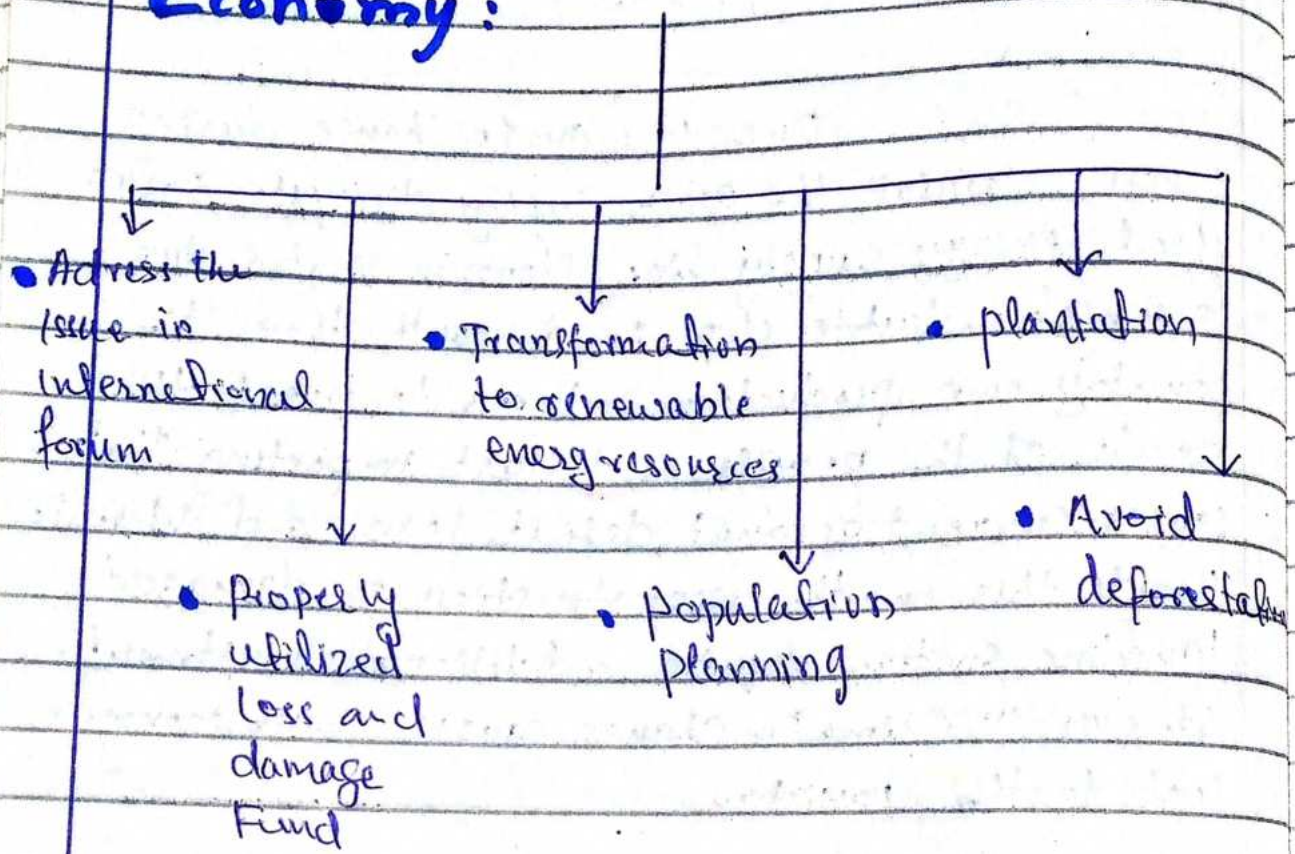 Economy:
• Adress the
issue in
internetional
forum
• Properly
utilized
loss and
damage
Fund
• Transformation
to renewable
energresources
• population
planning
• plantation
• Avoid
deforestation